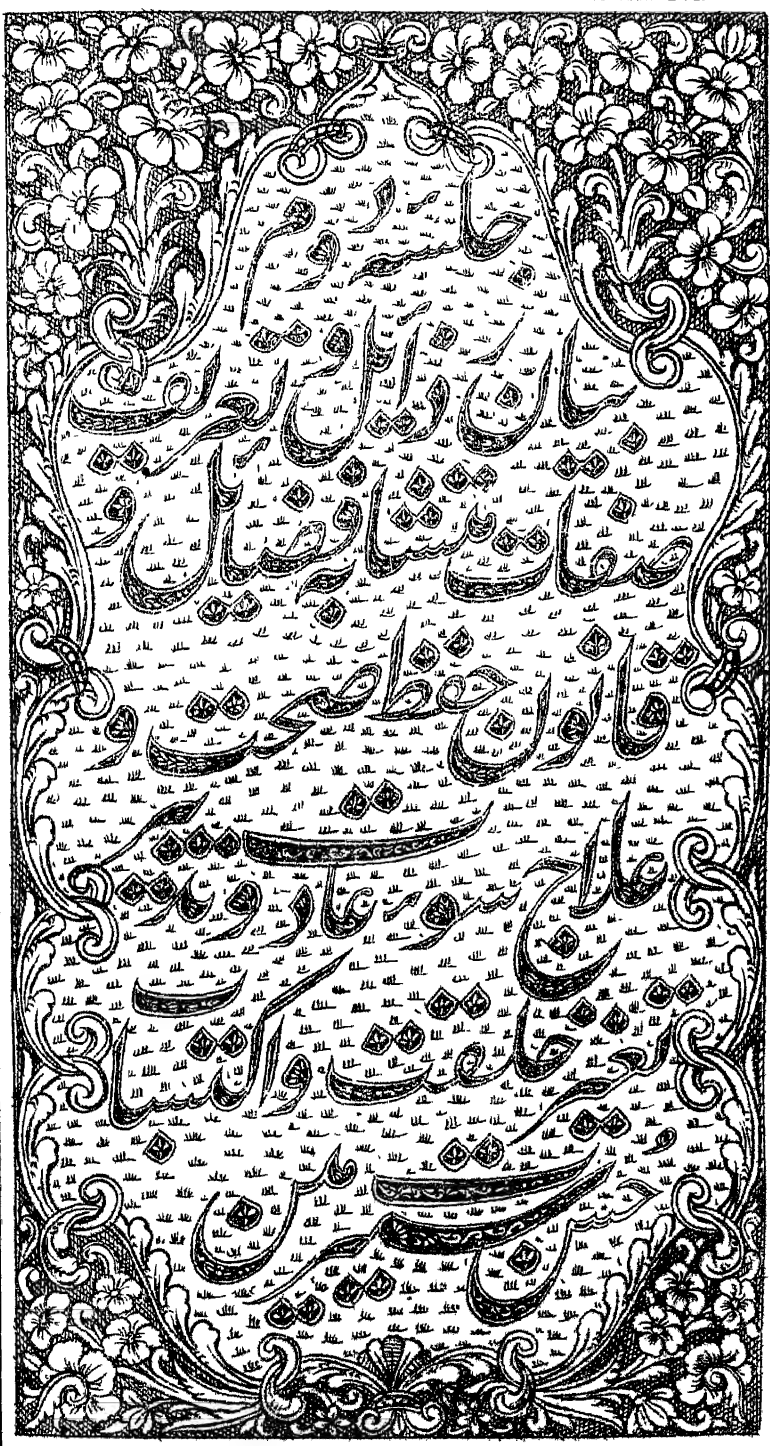 جلسه دوم
بیان رذایل و تعریف
صفات متشابه فضایل و
قانون حفظ صحت و
علاج سوء عادت و تدبیر
تغییر خلقت و اکتساب
حُسن سیرت